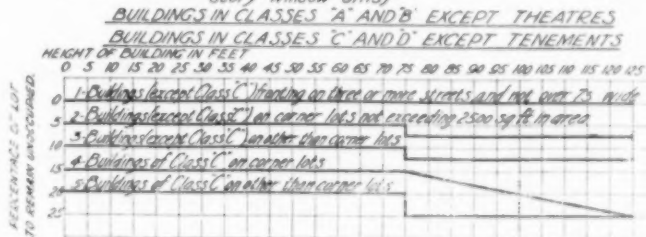 BUILDINGS IN CLASSES "A" AND "B" EXCEPT THEATRES
BUILDINGS IN CLASSES "C" AND "D" EXCEPT TENEMENTS
HEIGHT OF BUILDING IN FEET
0 5 10 15 20 25 30 35 40 45 50 55 60 65 70 75 80 85 90 95 100 105 110 115 120 125
PERCENTAGE OF LOT
TO REMAIN UNOCCUPIED.
0 1-Buildings (except Class "C") fronting on three or more streets and not over 75' wide
5 2-Buildings (except Class "C") on corner lots not exceeding 2500 sq ft in area
10 3-Buildings (except Class "C") on other than corner lots
15 4-Buildings of Class "C" on corner lots
20 5-Buildings of Class "C" on other than corner lots
25